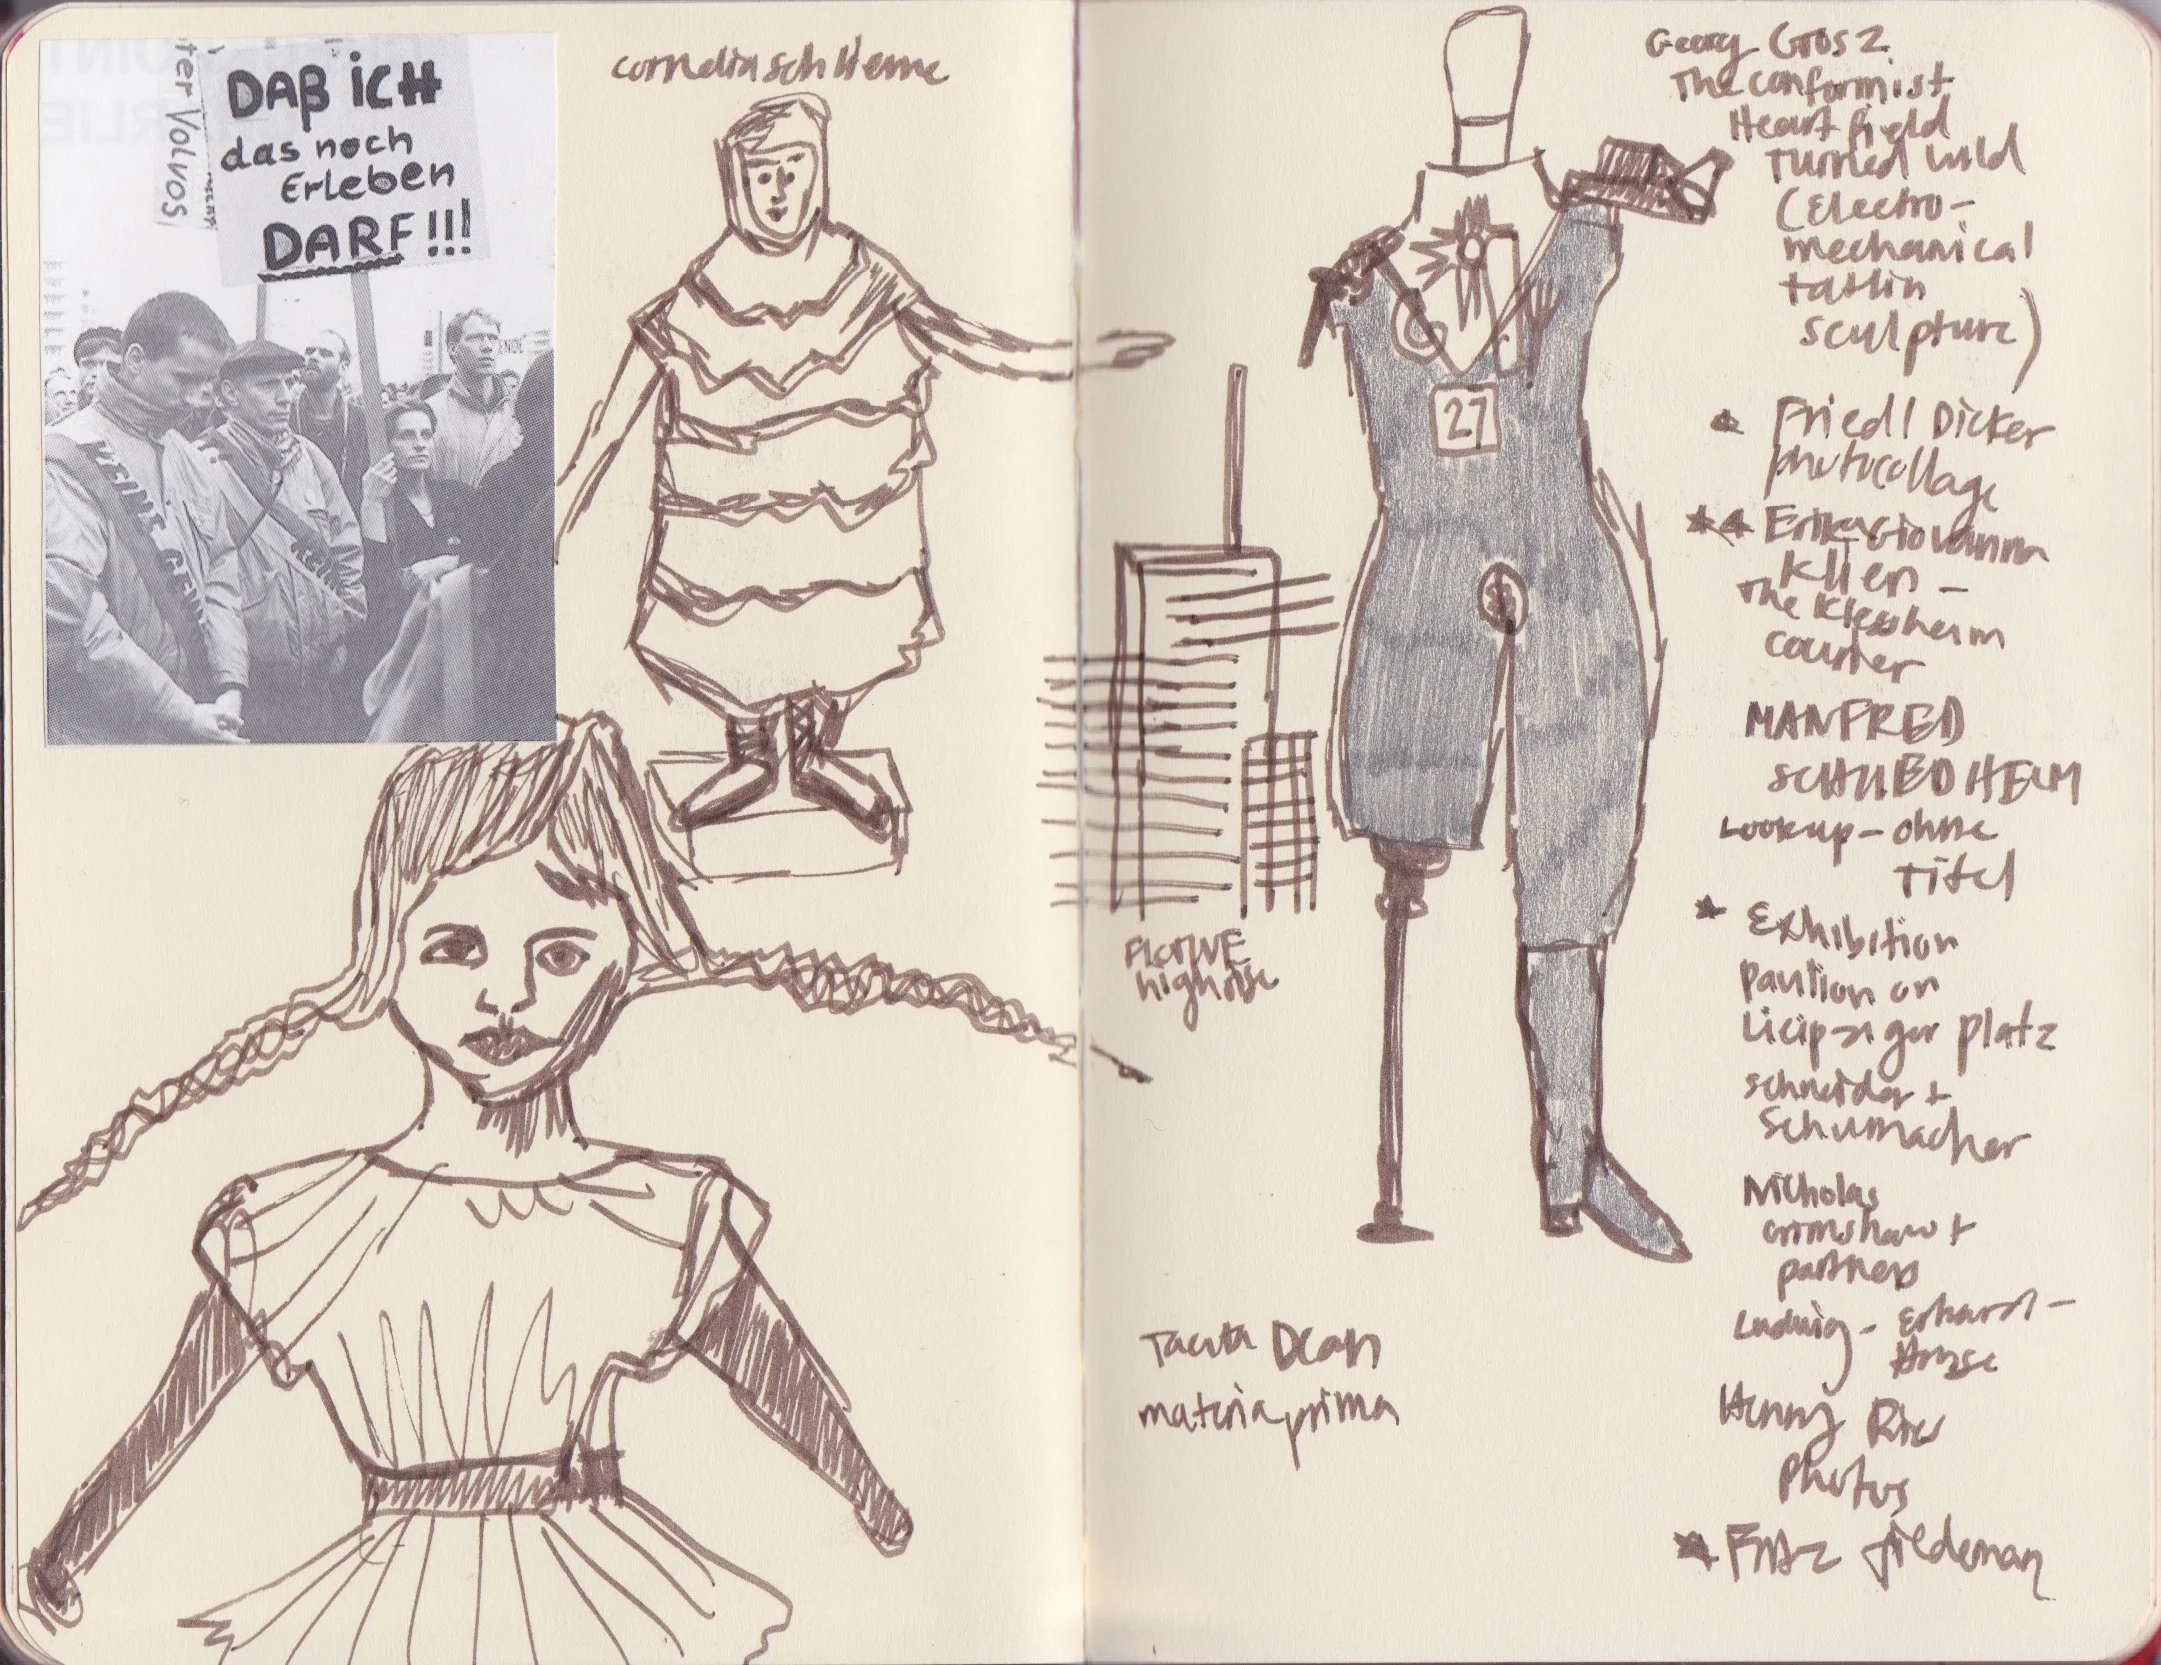 ter Volvos
DAß iCH
das noch
Erleben
DARF!!!
KEINE GEWALT
KEINE
corneliaschlieme
27
Georg Grosz
The conformist
Heartfield
Turned wild
(Electro-
mechanical
tatlin
sculpture)
Friedl Dicker
photocollage
Erika Giovanna
Klien -
The Klessheim
courier
MANFRED
SCHUEDHELM
Lookup - ohne
Titel
Exhibition
Pavilion on
Licipziger Platz
schneider +
Schumacher
Nicholas
Grimshaw +
partners
Ludwig - Erhard -
House
Henny Rie
Photos
Fritz
FICTIVE
highrise
Tacita Dean
materia prima